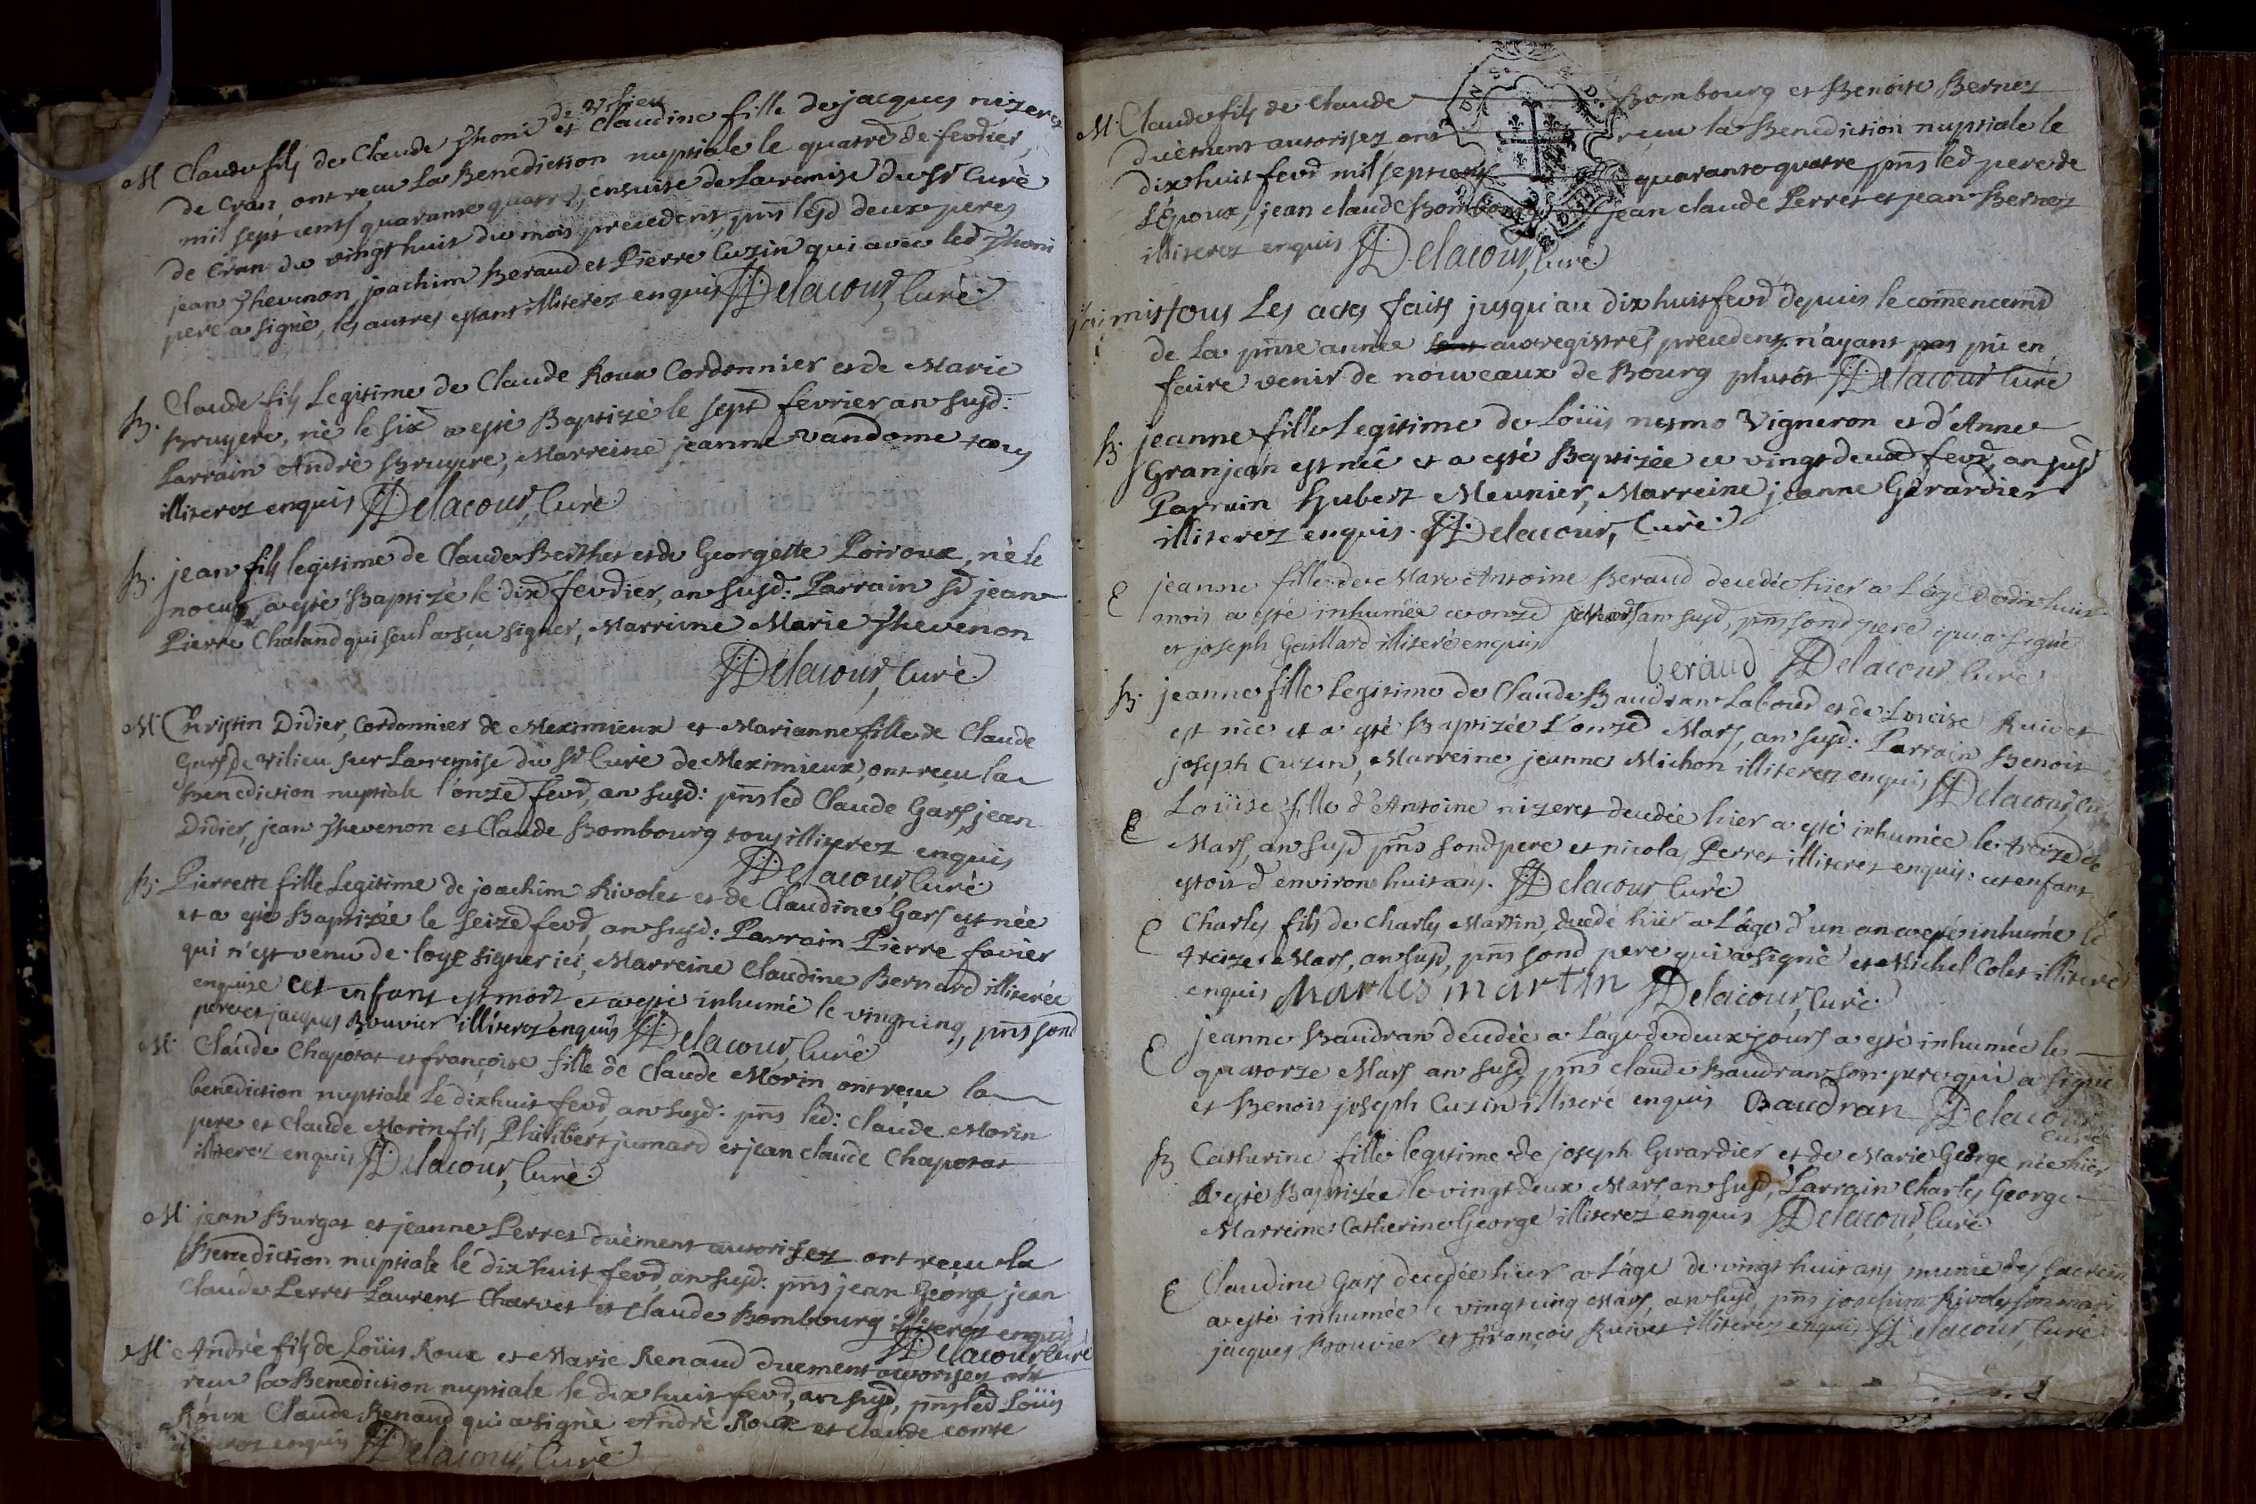 de vilieu
M Claude fils de Claude Thoni et Claudine fille de jacques nizeret
de Cran, ont reçu La Benediction nuptiale le quatre de fevrier,
mil sept cents quarante quatre, ensuite de La remise du Sr Curé
de Cran du vingt huit du mois precedent, pñs lesd deux peres
jean Thevenon, joachim Beraud et Pierre Cuzin qui avec led Thoni
pere a signé, les autres estant illiterez enquis Delacour, Curé.
B. Claude fils Legitime de Claude Roux Cordonnier et de Marie
Bruyere, né le six a esté Baptizé le sept fevrier an susd:
Parrain André Bruyere, Marreine jeanne vandome tous
illiterez enquis Delacour, Curé
B. jean fils legitime de Claude Berthet et de Georgette Poiroux, né le
noeuf, a esté Baptizé le dix fevrier, an susd: Parrain Sr jean
Pierre Chaland qui seul a sçu signer, Marreine Marie Thevenon
Delacour, Curé.
M Christin Didier, Cordonnier de Meximieux et Marianne fille de Claude
Gars de vilieu sur La remise du Sr Curé de Meximieux, ont reçu la
Benediction nuptiale l'onze fevr, an susd: pñs led Claude Gars, jean
Didier, jean Thevenon et Claude Bombourg tous illiterez enquis
Delacour, Curé.
B. Pierrette fille Legitime de joachim Rivolet et de Claudine Gars est née
et a esté Baptizée le seize fevr, an susd: Parrain Pierre favier
qui n'est venu de: loye signer ici, Marreine Claudine Bernard illiterée
enquise cet enfant est mort et a esté inhumé le vingtcinq, pñs sond
pere et jacques Bouvier illiterez enquis Delacour, Curé
M. Claude Chapotat et françoise fille de Claude Morin ont reçu la
benediction nuptiale le dixhuit fevr, an susd: pñs led: Claude Morin
pere et Claude Morin fils, Philibert jumard et jean claude Chapotat
illiterez enquis Delacour, Curé.
M. jean Burgat et jeanne Perret duëment autorisez ont reçu la
Benediction nuptiale le dix huit fevr, an susd: pñs jean George, jean
Claude Perret Laurent Charvet et Claude Bombourg illiterez enquis
Delacour Curé
M. André fils de Loüis Roux et Marie Renaud duement autorisez ont
reçu la Benediction nuptiale le dix huit fevr, an susd, pñs led Loüis
Roux Claude Renaud qui a signé André Roux et claude comte
illiterez enquis Delacour, Curé
M. Claude fils de Claude Bombourg et Benoite Bernet
duëment autorisez ont reçu la Benediction nuptiale le
dix huit fevr mil sept cent quarante quatre pñs led pere de
L'Epoux, jean claude Bombourg jean claude Perret et jean Bernet
illiterez enquis Delacour, Curé
j'ai mis tous Les actes faits jusqu'au dix huit fevr depuis le com̃encemt
de La pñte année aux registres precedens n'ayant pas pû en
faire venir de nouveaux de Bourg plutôt Delacour Curé
B. jeanne fille Legitime de Loüis nesmo Vigneron et d'Anne
Granjean est née et a esté Baptizée ce vingt deux fevr, an susd
Parrain Hubert Meunier, Marreine jeanne Gerardier
illiterez enquis. Delacour, Curé.
E jeanne fille de Marc Antoine Beraud decedée hier a L'âge de dix huit
mois a esté inhumée ce onze mars an susd, pñs sond pere qui a signé
et joseph Gaillard illiteré enquis
beraud Delacour Curé
B. jeanne fille Legitime de Claude Baudran Labour et de Loüise Ruivet
est née et a esté Baptizée L'onze Mars, an susd: Parrain Benoit
joseph Cuzin, Marreine jeanne Michon illiterez enquis Delacour, Curé
E Loüise fille d'Antoine nizeret decedée hier a esté inhumée le treize de
Mars, an susd pñs sond pere et nicolas Perret illiterez enquis: cet enfant
estoit d'environ huit ans. Delacour Curé.
E Charles fils de Charles Martin, decedé hier a L'âge d'un an a esté inhumé le
treize Mars, an susd, pñs sond pere qui a signé et Michel Colet illiteré
enquis charles martin Delacour, Curé.
E jeanne Baudran decedée a L'âge de deux jours a esté inhumée le
quatorze Mars an susd, pñs claude Baudran son pere qui a signé
et Benoit joseph Cuzin illiteré enquis Baudran Delacour
Curé
B Catherine fille legitime de joseph Girardier et de Marie George née hier
a esté Baptizée le vingt deux Mars, an susd, Parrain Charles George
Marreine Catherine George illiterez enquis Delacour, Curé
E Claudine Gars decedée hier a L'âge de vingt huit ans munie des Sacrem
a esté inhumée le vingtcinq Mars, an susd, pñs joachim Rivolet son mari
jacques Bouvier et françois Ruivet illiterez enquis Delacour, Curé